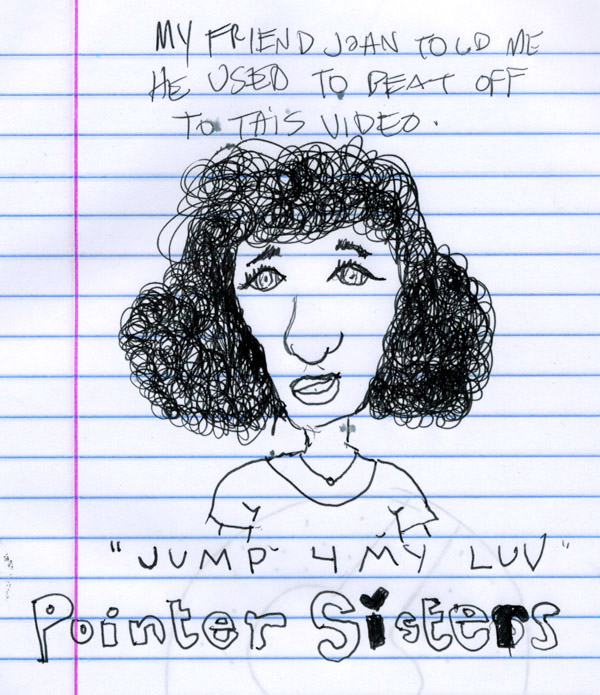 MY FRIEND JOAN TOLD ME
HE USED TO BEAT OFF
TO THIS VIDEO.
"JUMP 4 MY LUV"
Pointer Sisters